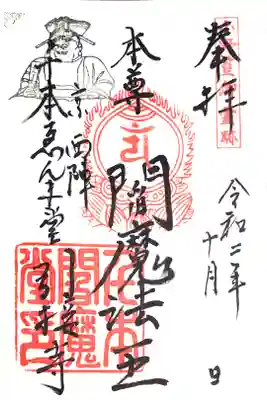 奉拝
令和二年
十月 日
本尊
閻魔法王
京 西陣
千本ゑんま堂
引接寺
千本
閻魔
堂印